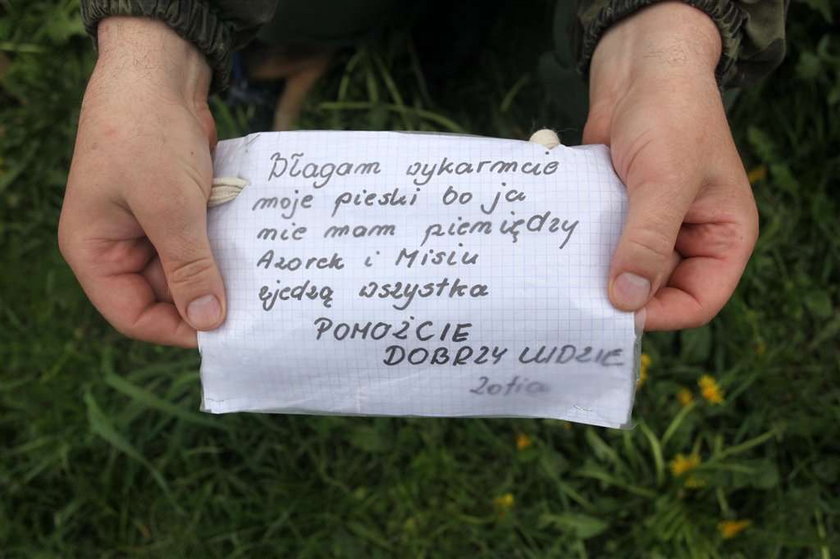 Błagam wykarmcie
moje pieski bo ja
nie mam pieniędzy
Azorek i Misiu
zjedzą wszystka
POMOŻCIE
DOBRZY LUDZIE
Zofia